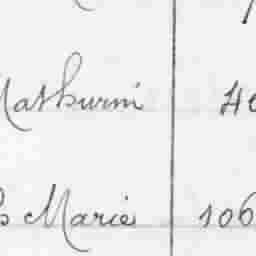 Mathurin 40
Marie 106